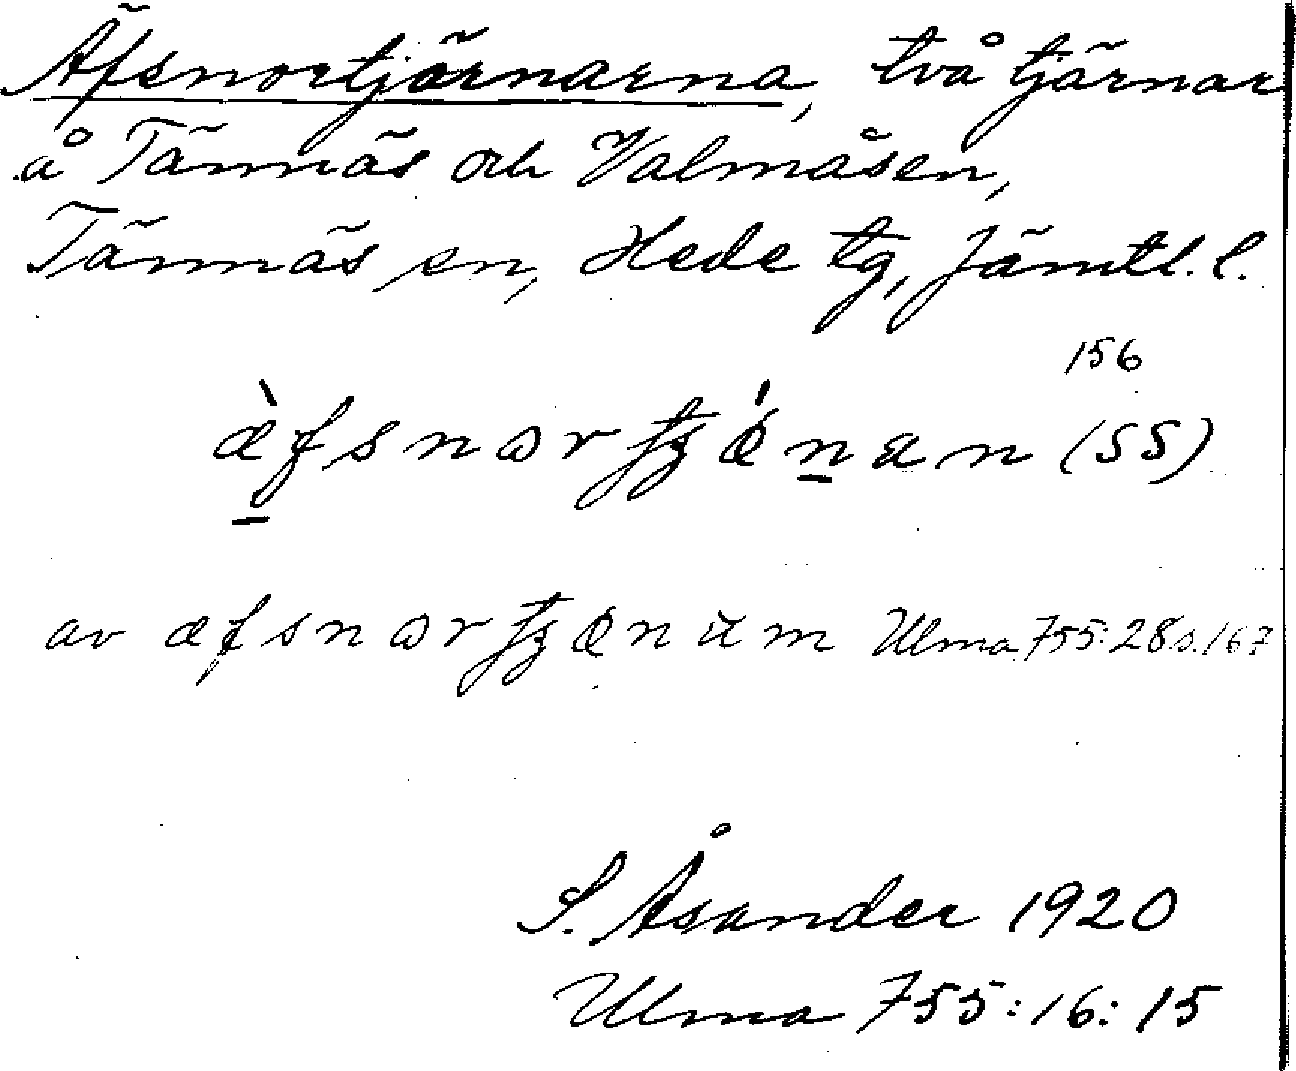 Äfsnortjärnarna, två tjärnar
å Tännäs och Valmåsen,
Tännäs sn, Hede tg, Jämtl. l.
156
æ̀fsnɷrtjǿnan (SS)
av æfsnɷrtjønum Ulma 755:28 s. 167
S. Åsander 1920
Ulma 755:16:15